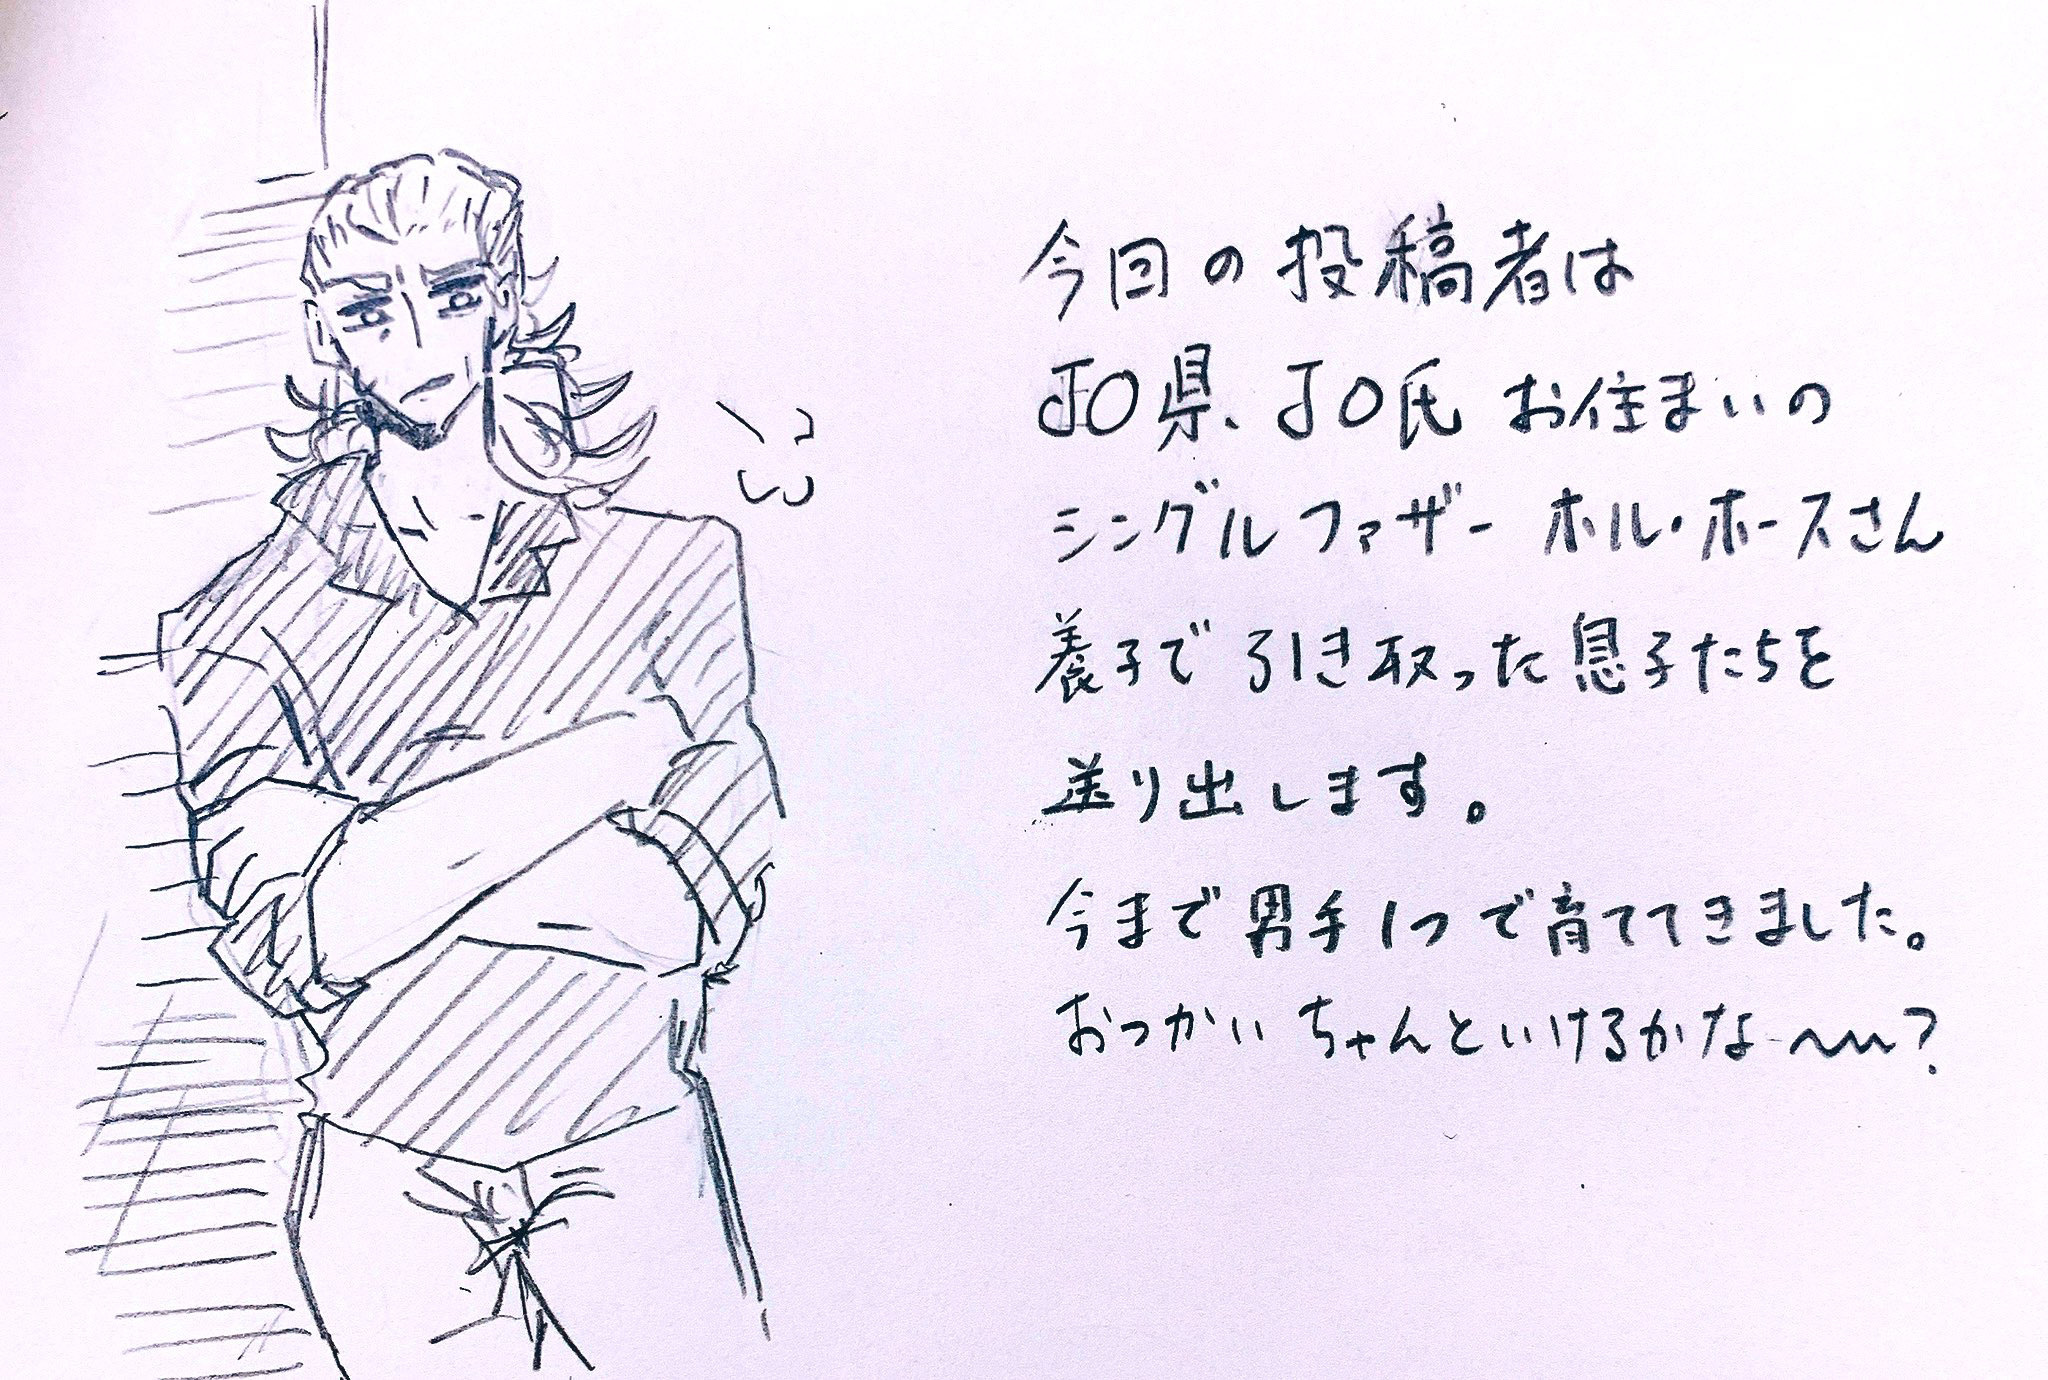 今回の投稿者は
JO県、JO氏お住まいの
シングルファザー ホル・ホースさん
養子で引き取った息子たちを
送り出します。
今まで男手1つで育ててきました。
おつかいちゃんといけるかな〜〜?